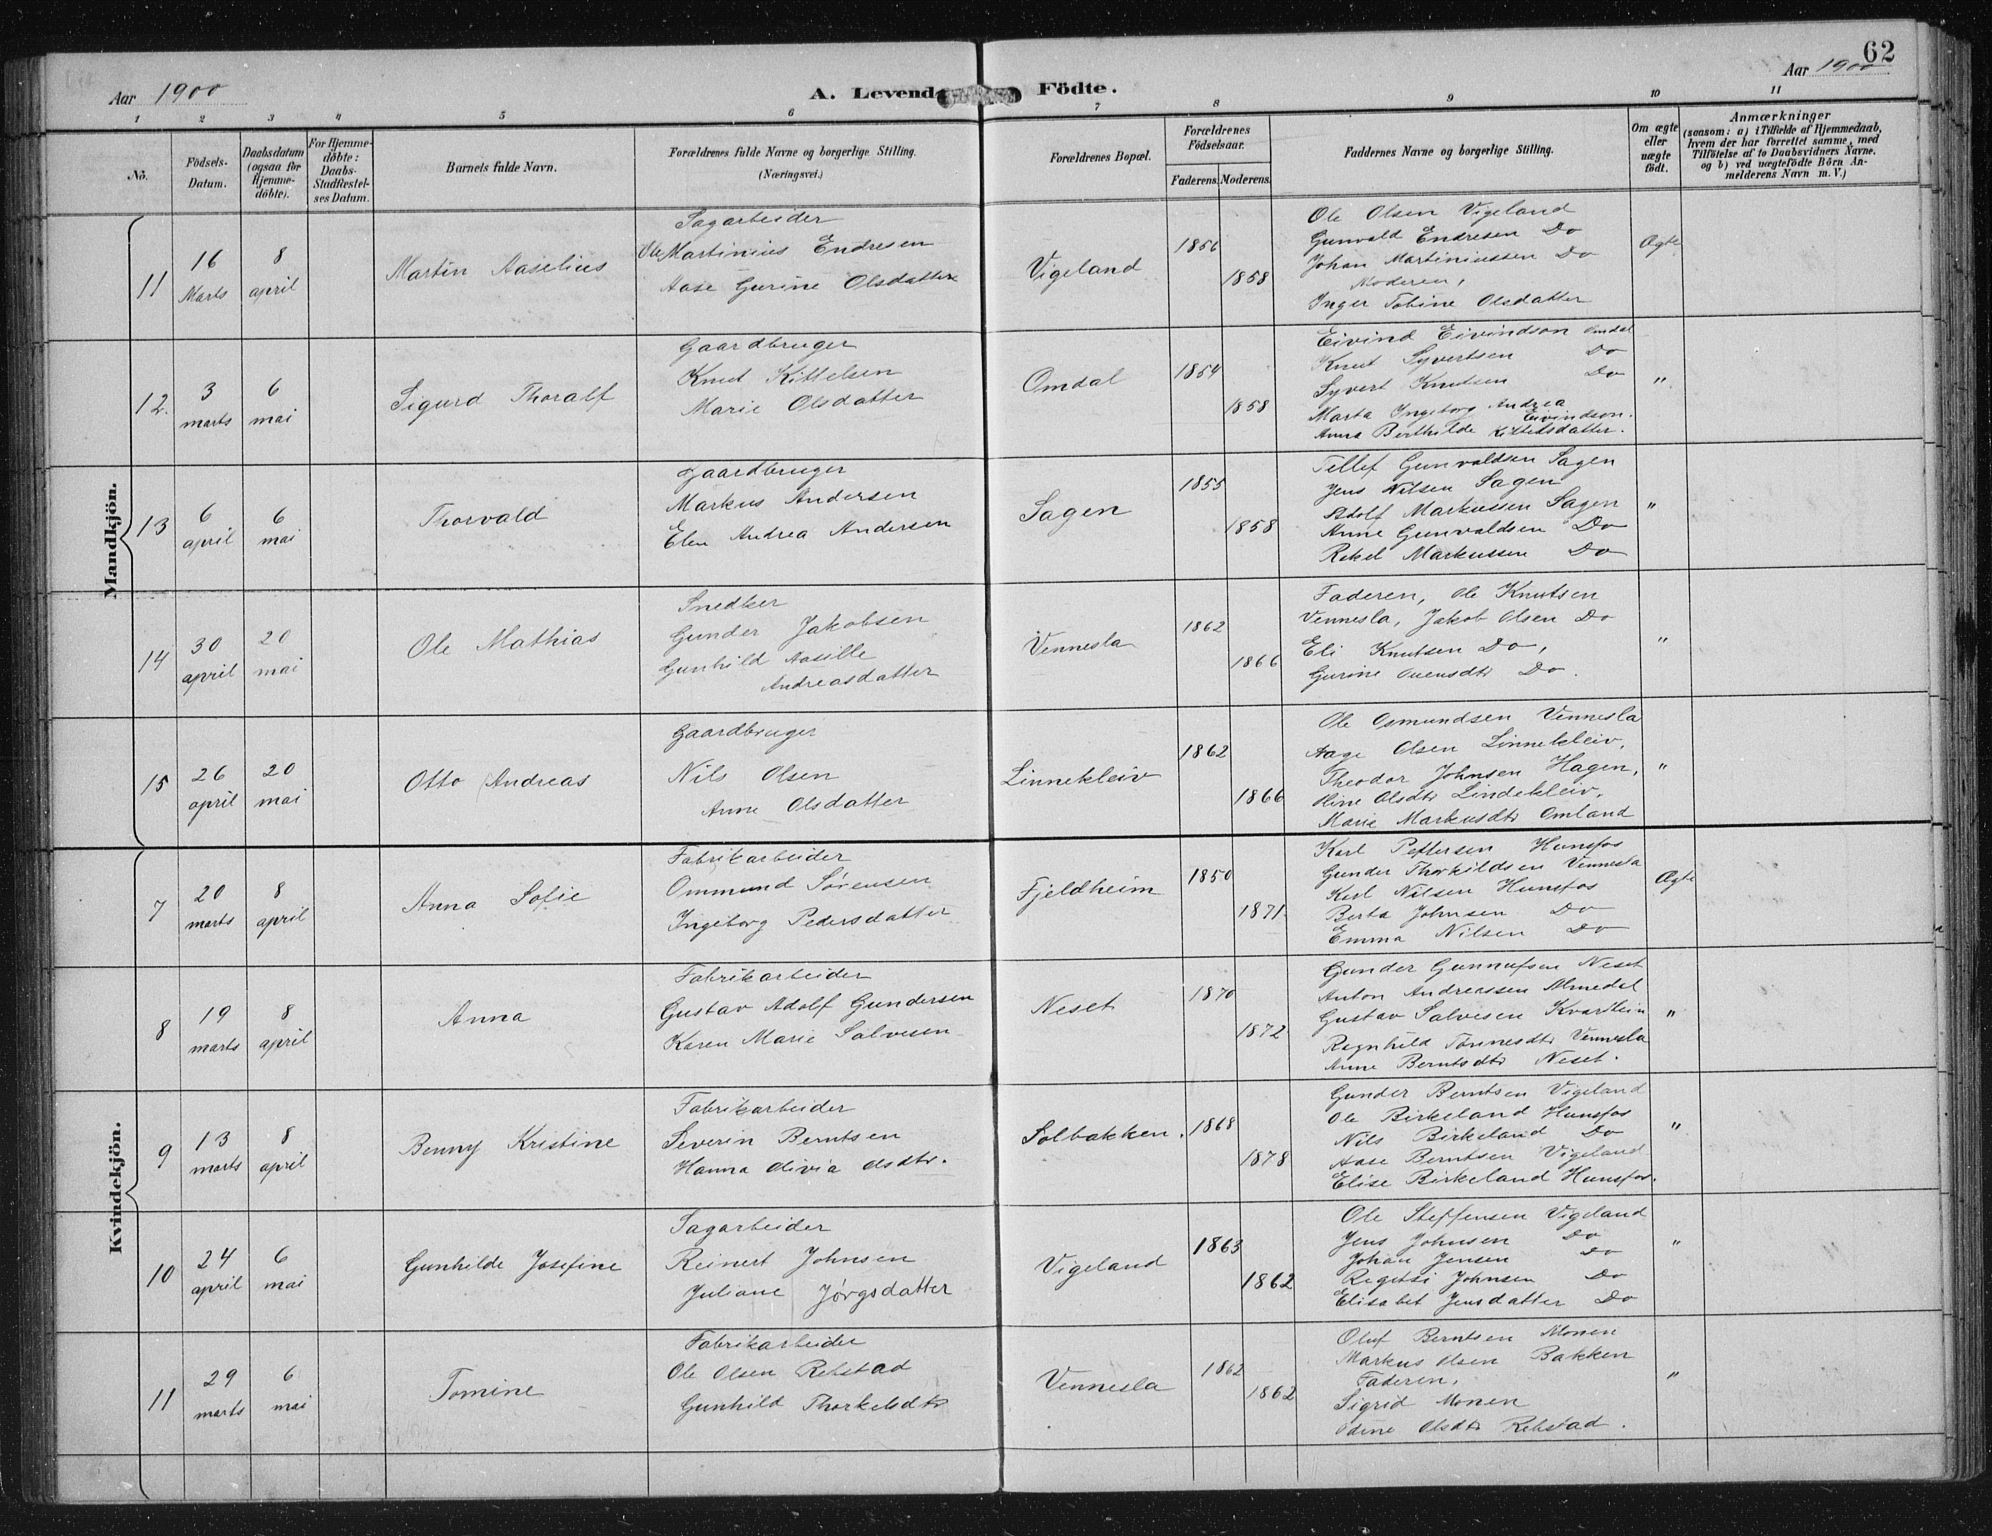 62
Aar 1900
A. Levende Födte.
Aar 1900
1 2 3 4 5 6 7 8 9 10 11
No.
Födsels-Datum.
Daabsdatum (ogsaa for Hjemme-döbte).
For Hjemme-döbte: Daabs-Stadfæstel-ses Datum.
Barnets fulde Navn.
Forældrenes fulde Navne og borgerlige Stilling.
(Næringsvei.)
Forældrenes Bopæl.
Forældrenes Födselsaar.
Faderens. Moderens.
Faddernes Navne og borgerlige Stilling.
Om ægte eller uægte födt.
Anmærkninger
(saasom: a) i Tilfælde af Hjemmedaab, hvem der har forrettet samme, med Tilföielse af to Daabsvidners Navne. og b) ved uægtefödte Börn An-melderens Navn m. V.)
Mandkjön.
11
16 Marts
8 april
Martin Aaselius
Sagarbeider
Ole Martinius Endresen
Aase Gurine Olsdatter
Vigeland
1856
1858
Ole Olsen Vigeland
Gunvald Endresen Do
Johan Martiniussen Do
Moderen,
Inger Tobine Olsdatter
Ægte
12.
3 marts
6 mai
Sigurd Thoralf
Gaardbruger
Knut Kittelsen
Marie Olsdatter
Omdal
1854
1858
Eivind Eivindson Omdal
Knut Syvertsen Do
Syvert Knutsen Do
Marta Ingeborg Andrea
Eivindson.
Anna Berthilde Kittelsdatter.
"
13
6 april
6 mai
Thorvald
Gaardbruger
Markus Andersen
Elen Andrea Andersen
Sagen
1855
1858
Tellef Gunvaldsen Sagen
Jens Nilsen Sagen
Adolf Markussen Sagen
Anne Gunvaldsen Do
Rakel Markussen Do
"
14
30 april
20 mai
Ole Mathias
Snedker
Gunder Jakobsen
Gunhild Aasille
Andreasdatter
Vennesla
1862
1866
Faderen, Ole Knutsen
Vennesla, Jakob Olsen Do
Eli Knutsen Do,
Gurine Do.
"
15
26 april
20 mai
Otto Andreas
Gaardbruger
Nils Olsen
Anne Olsdatter
Linnekleiv
1862
1866
Ole Osmundsen Vennesla
Aage Olsen Linnekleiv,
Theodor Johnsen Hagen,
Olsdtr Lindekleiv,
Marie Markusdtr Omland
"
Kvindekjön.
7
20 marts
8 april
Anna Sofie
Fabrikarbeider
Ommund Sørensen
Ingeborg Pedersdatter
Fjeldheim
1850
1871
Karl Pettersen Hunsfos
Gunder Thorkildsen Vennesla
Karl Nilsen Hunsfos
Berta Johnsen Do
Emma Nilsen Do
Ægte
8
19 marts
8 april
Anna
Fabrikarbeider
Gustav Adolf Gundersen
Karen Marie Salvesen
Neset
1870
1872
Gunder Gunnufsen Neset
Anton Andreassen Almedal
Gustav Salvesen Kvarstein
Ragnhild Tønnesdtr Vennesla
Anne Berntsdtr Neset.
"
9
13 marts
8 april
Benny Kristine
Fabrikarbeider
Severin Berntsen
Hanna Olivia Olsdtr.
Solbakken.
1868
1878
Gunder Berntsen Vigeland
Ole Birkeland Hunsfos
Nils Birkeland Do
Aase Berntsen Vigeland
Elise Birkeland Hunsfos.
"
10
24 april
6 mai
Gunhilde Josefine
Sagarbeider
Reinert Johnsen
Juliane Jørgsdatter
Vigeland
1863
1862
Ole Steffensen Vigeland
Jens Johnsen Do
Johan Jensen Do
Johnsen Do
Elisabet Jensdatter Do
"
11
29 marts
6 mai
Tomine
Fabrikarbeider
Ole Olsen Rebstad
Gunhild Thorkelsdtr
Vennesla
1862
1862
Oluf Berntsen Monen
Markus Olsen Bakken
Faderen,
Sigrid Monen
Odine Olsdtr Rebstad.
"